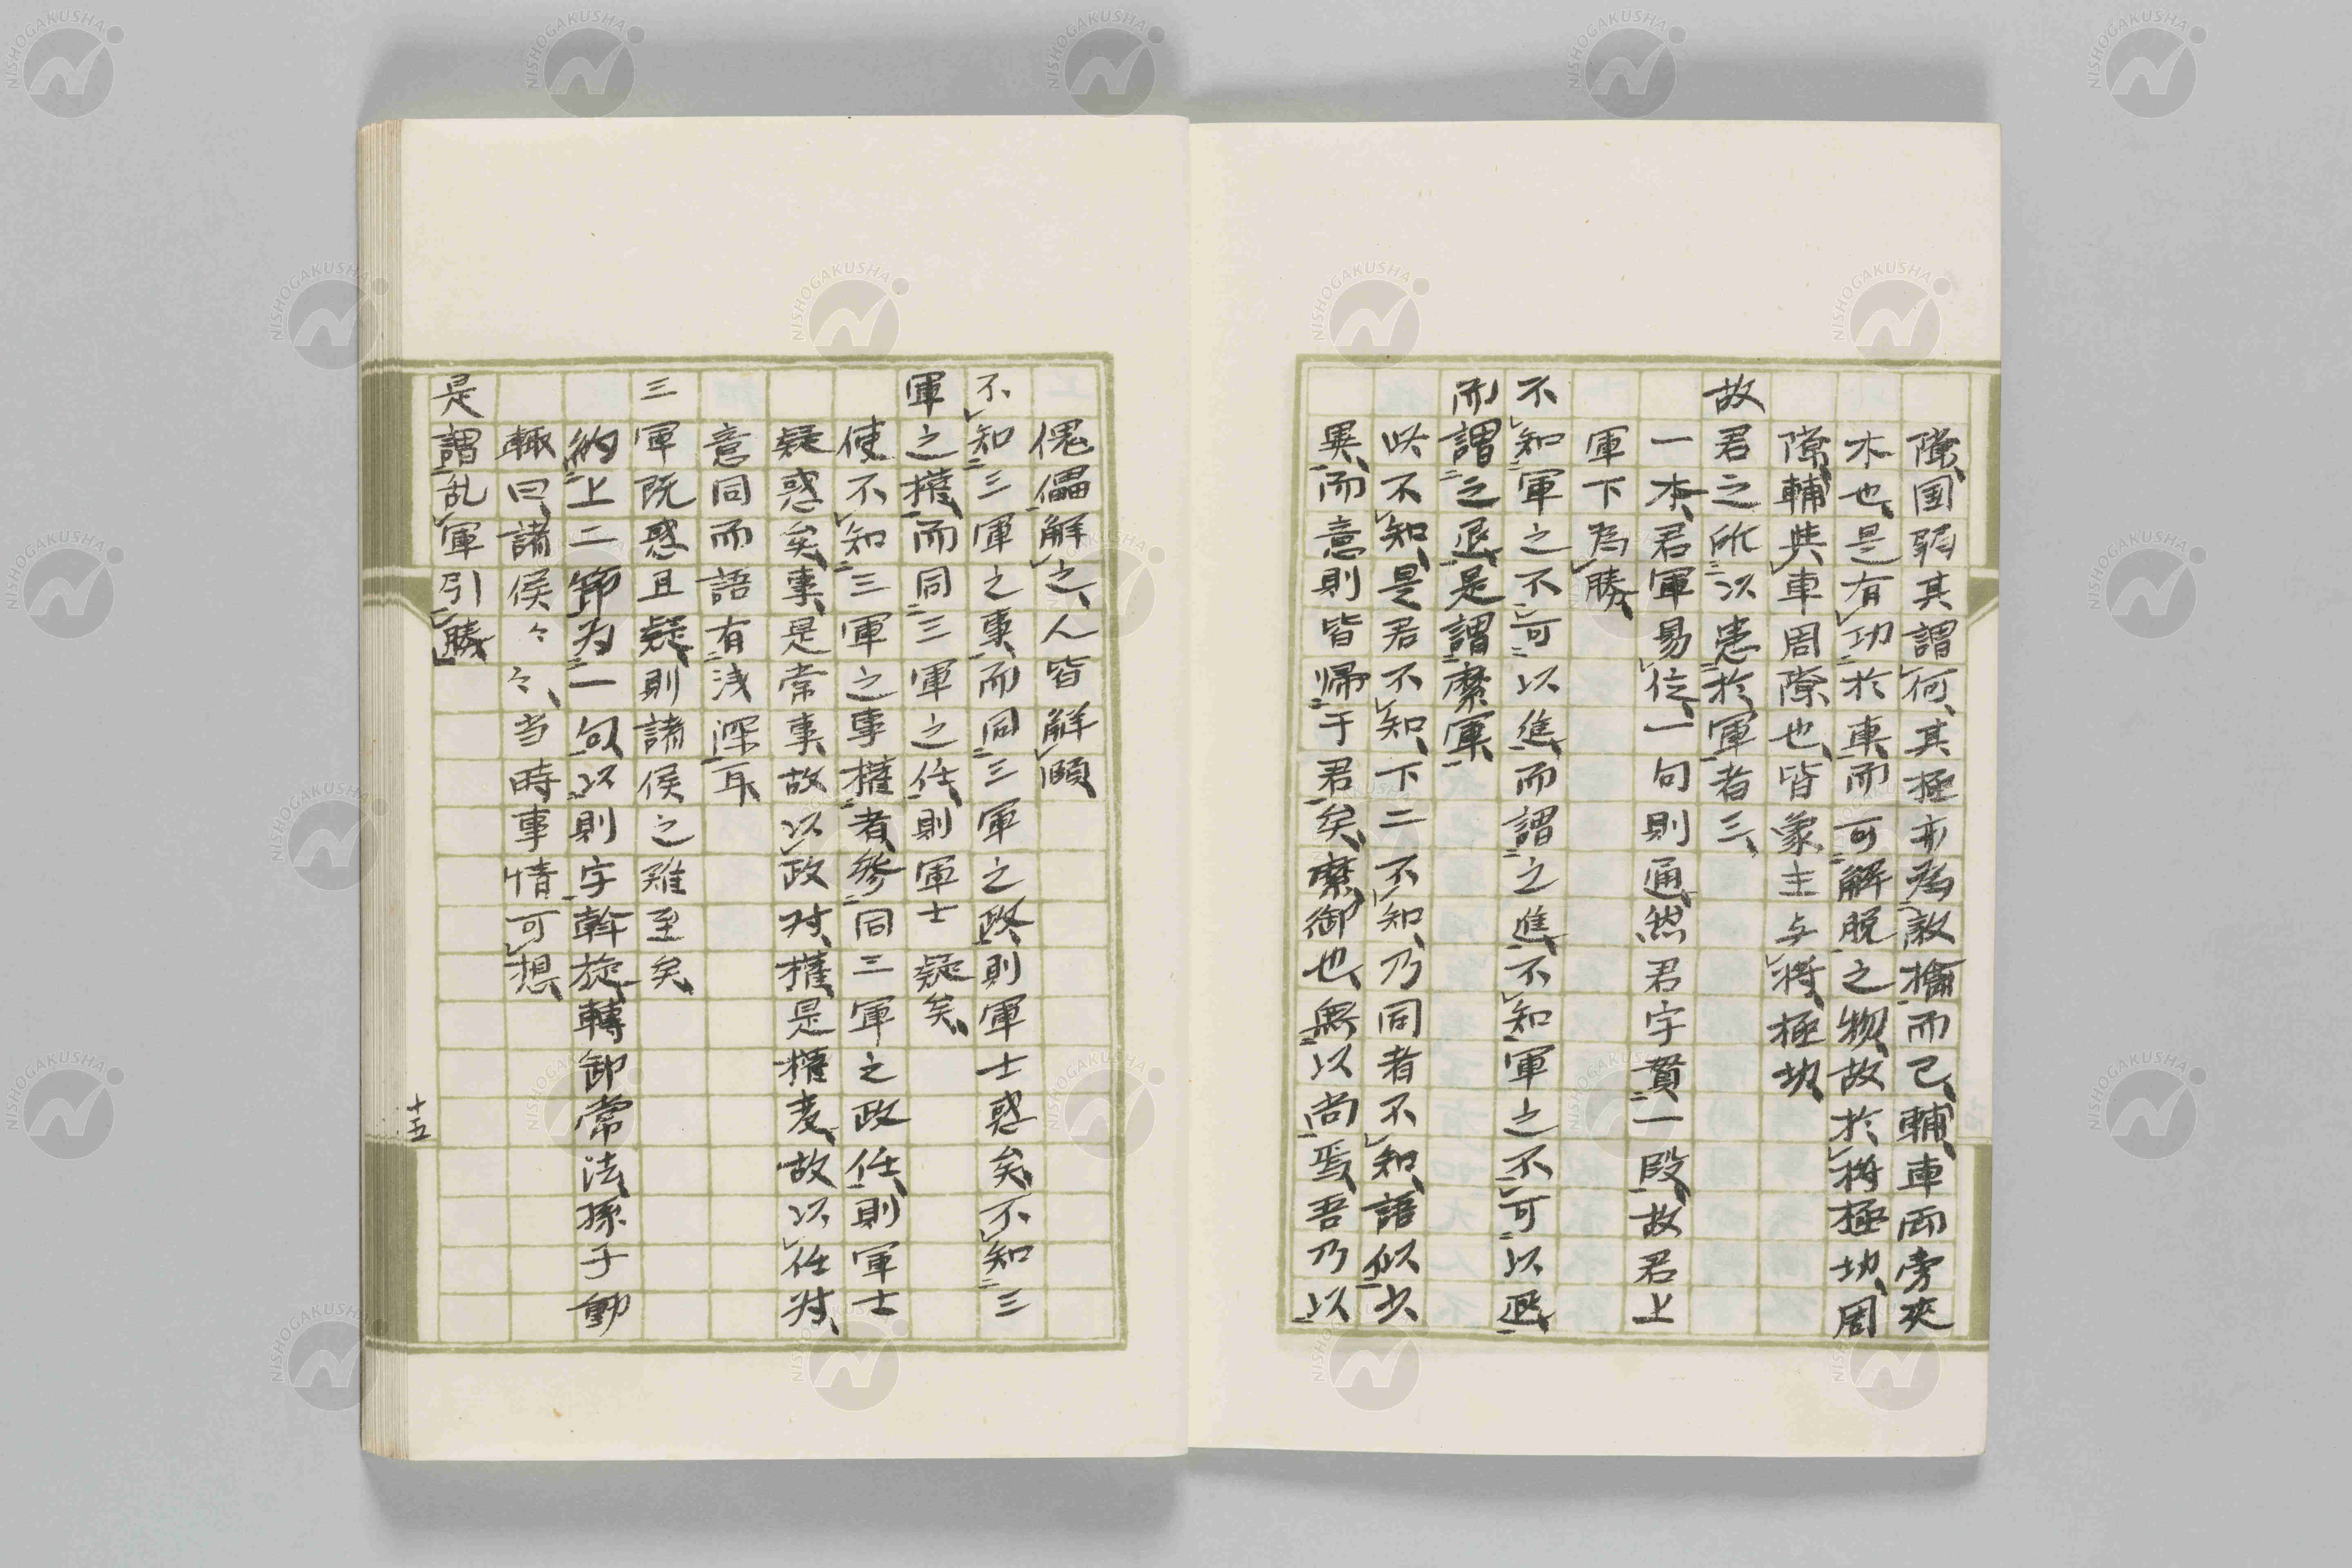 隙、国弱其謂何、其極亦為敌擒而已、輔、車両旁夾
木也、是有功於車而可解脱之物、故於将極功、周
隙、輔与車周隙也、皆蒙主与将、極功、
故君之所以患於軍者三、
一本、君軍易位、一句則通、然君字貫一段、故君上
軍下為勝、
不知軍之不可以進而謂之進、不知軍之不可以退
而謂之退、是謂縻軍、
此不知、是君不知、下二不知、乃同者不知、語似少
異、而意則皆帰于君矣、縻、御也、無以尚焉、吾乃以
傀儡解之、人皆解頤、
不知三軍之事、而同三軍之政、則軍士惑矣、不知三
軍之権、而同三軍之任、則軍士疑矣、
使不知三軍之事権者、参同三軍之政任、則軍士
疑惑矣、事、是常事、故以政対、権、是権変、故以任対、
意同而語有浅深耳、
三軍既惑且疑、則諸侯之難至矣、
納上二節為一句、以則字斡旋、転卸常法、孫子動
輒曰、諸侯々々、当時事情可想、
是謂乱軍引勝、
十五